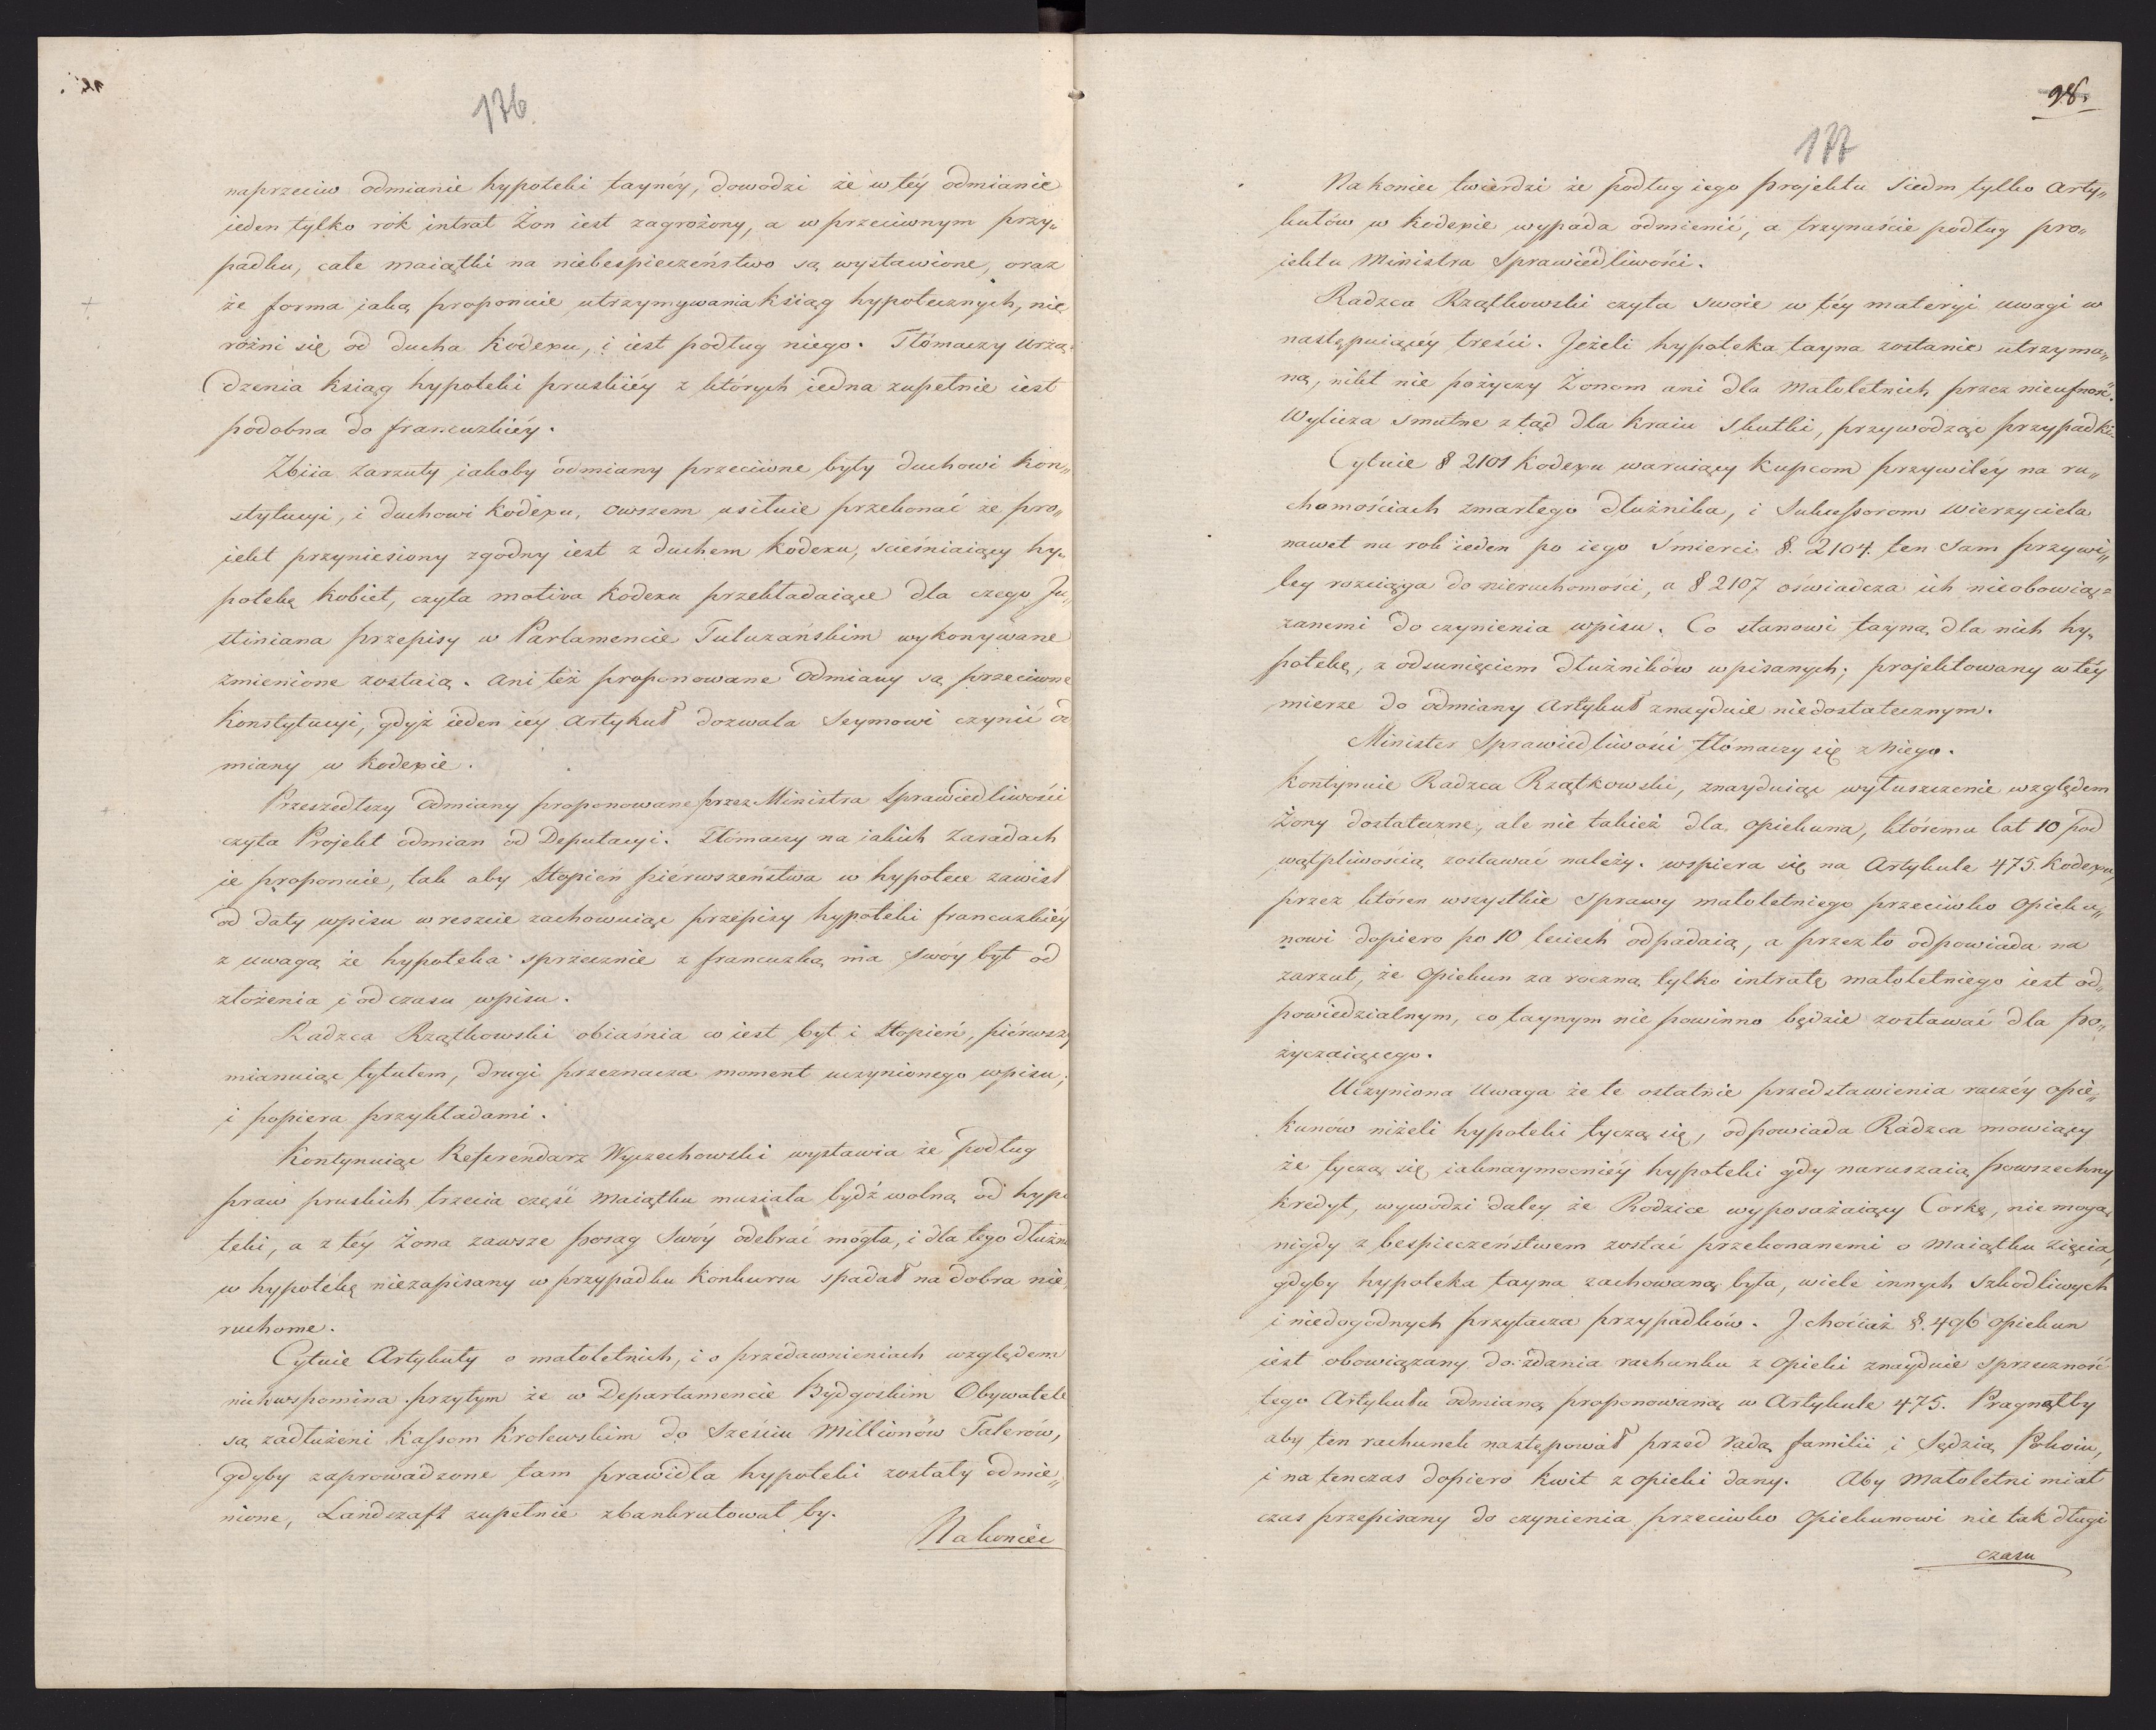 136.
naprzeciw odmianie hypoteki taynéy, dowodzi że w téy odmianie
ieden tylko rok intrat Żon iest zagrożony, a w przeciwnym przy„
padku, całe maiątki na niebespieczeństwo są wystawione, oraz
że forma iaką proponuie utrzymywania ksiąg hypotecznych, nie
rożni się od ducha Kodexu, i iest podług niego. Tłómaczy urzą„
dzenia ksiąg hypoteki pruskiéy z których iedna zupełnie iest
podobna do francuzkiéy.
Zbiia zarzuty iakoby odmiany przeciwne były duchowi Kon„
stytucyi, i duchowi Kodexu, owszem usiłuie przekonać że pro„
iekt przyniesiony zgodny iest z duchem Kodexu, scieśniaiący hy„
potekę kobiet, czyta motiva Kodexu przekładaiące dla czego Ju„
stiniana przepisy w Parlamencie Tuluzańskim wykonywane
zmienione zostaią. Ani też proponowane odmiany są przeciwne
Konstytucyi, gdyż ieden iéy Artykuł dozwala Seymowi czynić od
miany w Kodexie.
Przeszedłszy Odmiany proponowane przez Ministra Sprawiedliwości
czyta Projekt odmian od Deputacyi. Tłómaczy na iakich Zasadach
ie proponuie, tak aby Stopień piérwszeństwa w hypotece zawisł
od daty wpisu w reszcie zachowuiąc przepisy hypoteki francuzkiéy
z uwagą że hypoteka sprzecznie z francuzką ma swóy byt od
złożenia i od czasu wpisu.
Radzca Rzątkowski obiaśnia co iest byt i Stopień, piérwszy
mianuiąc tytułem, drugi przeznacza moment uczynionego wpisu;
i popiera przykładami.
Kontynuiąc Referendarz Wyczechowski wystawia że podług
praw pruskich trzecia część Maiątku musiała bydź wolną od hypo
teki, a z téy Żona zawsze posag Swóy odebrać mogła, i dla tego dłużn
w hypotekę niezapisany w przypadku Konkursu spadał na dobra nie„
ruchome.
Cytuie Artykuły o małoletnich, i o przedawnieniach względem
nich wspomina przytym że w Departamencie Bydgoskim Obywatele
są zadłużeni Kassom Krolewskim do Sześciu Millionów Talerów,
gdyby zaprowadzone tam prawidła hypoteki zostały odmie„
nione, Landszaft zupełnie zbankrutował by.
Nakoniec
98.
177
Nakoniec twierdzi że podług iego projektu Siedm tylko Arty„
kułów w Kodexie wypada odmienić, a trzynaście podług pro„
iektu Ministra Sprawiedliwości.
Radzca Rzątkowski czyta swoie w téy materyi uwagi w
następuiącéy treści. Jeżeli hypoteka tayna zostanie utrzyma„
ną, nikt nie pożyczy Żonom ani dla Małoletnich przez nieufność.
Wylicza smutne ztąd dla Kraiu Skutki, przywodząc przypadki.
Cytuie § 2101 Kodexu waruiący Kupcom przywiléy na ru„
chomościach zmarłego dłużnika, i Sukcessorom wierzyciela
nawet na rok ieden po iego śmierci §. 2104. ten sam przywi„
ley rozciąga do nieruchomości, a § 2107 oświadcza ich nieobowią„
zanemi do czynienia wpisu. Co stanowi tayną dla nich hy„
potekę, z odsunięciem dłużników wpisanych; projektowany w téy
mierze do odmiany Artykuł znayduie niedostatecznym.
Minister Sprawiedliwości tłómaczy się z niego.
Kontynuie Radzca Rzątkowski, znayduiąc wyłuszczenie względem
Żony dostateczne, ale nie takież dla opiekuna, któremu lat 10 pod
wątpliwością zostawać należy. wspiera się na Artykule 475. Kodexu,
przez któren wszystkie sprawy małoletniego przeciwko opieku„
nowi dopiero po 10 leciech odpadaią, a przez to odpowiada na
zarzut, że Opiekun za roczną tylko intratę małoletniego iest od„
powiedzialnym, co taynym nie powinno będzie zostawać dla po„
życzaiącego.
Uczyniona Uwaga że te ostatnie przedstawienia raczéy opie„
kunów niżeli hypoteki tyczą się, odpowiada Radzca mowiący
że tyczą się iaknaymocniéy hypoteki gdy naruszaią powszechny
Kredyt, wywodzi daley że Rodzice wyposażaiący Corkę, nie mogą
nigdy z bespieczeństwem zostać przekonanemi o Maiątku Zięcia,
gdyby hypoteka tayna zachowaną była, wiele innych szkodliwych
i niedogodnych przytacza przypadków. I chociaż §. 496 opiekun
iest obowiązany do zdania rachunku z opieki znayduie sprzeczność
tego Artykułu odmianą proponowaną w Artykule 475. Pragnąłby
aby ten rachunek następował przed radą familii i Sędzią Pokoiu,
i na tenczas dopiero kwit z opieki dany. Aby Małoletni miał
czas przepisany do czynienia przeciwko Opiekunowi nie tak długi
czasu